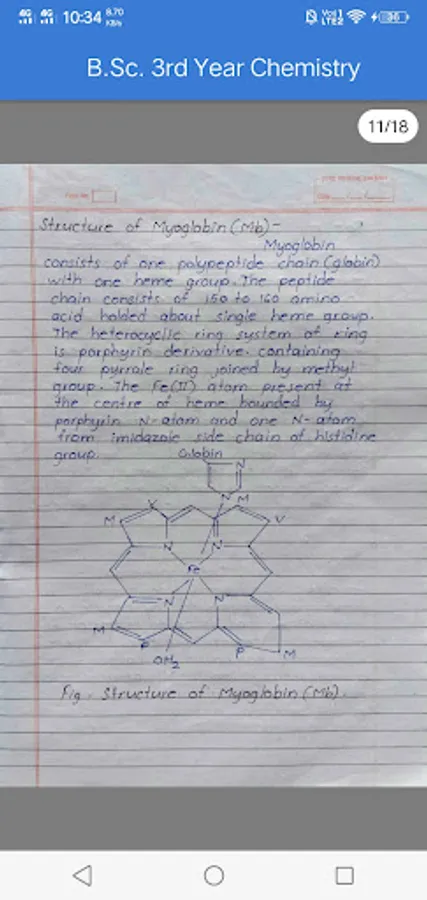 4G 4G 10:34 8.70 KB/s
Vo) 1 LTE2
B.Sc. 3rd Year Chemistry
11/18
Page No.
Date
Structure of Myoglobin (Mb) -
Myoglobin
consists of one polypeptide chain (globin)
with one heme group. The peptide
chain consists of 150 to 160 amino
acid holded about single heme group.
The heterocyclic ring system of ring
is porphyrin derivative. containing
four pyrrole ring joined by methyl
group. The Fe(II) atom present at
the centre of heme bounded by
porphyrin N-atom and one N-atom
from imidazole side chain of histidine
group.
Globin
N
N
M
M
V
V
N
N
Fe
N
N
M
P
P
M
OH2
Fig. Structure of Myoglobin (Mb).